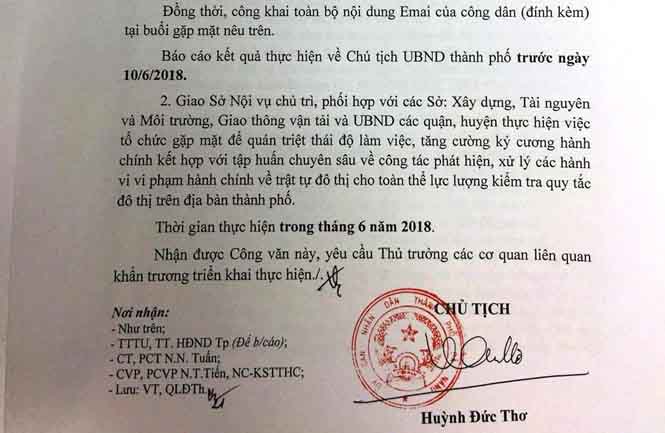 Đồng thời, công khai toàn bộ nội dung Emai của công dân (đính kèm)
tại buổi gặp mặt nêu trên.
Báo cáo kết quả thực hiện về Chủ tịch UBND thành phố trước ngày
10/6/2018.
2. Giao Sở Nội vụ chủ trì, phối hợp với các Sở: Xây dựng, Tài nguyên
và Môi trường, Giao thông vận tải và UBND các quận, huyện thực hiện việc
tổ chức gặp mặt để quán triệt thái độ làm việc, tăng cường kỷ cương hành
chính kết hợp với tập huấn chuyên sâu về công tác phát hiện, xử lý các hành
vi vi phạm hành chính về trật tự đô thị cho toàn thể lực lượng kiểm tra quy tắc
đô thị trên địa bàn thành phố.
Thời gian thực hiện trong tháng 6 năm 2018.
Nhận được Công văn này, yêu cầu Thủ trưởng các cơ quan liên quan
khẩn trương triển khai thực hiện./.
Nơi nhận:
- Như trên;
- TTTU, TT. HĐND Tp (Để b/cáo);
- CT, PCT N.N. Tuấn;
- CVP, PCVP N.T.Tiến, NC-KSTTHC;
- Lưu: VT, QLĐTh.
CHỦ TỊCH
ỦY BAN NHÂN DÂN THÀNH PHỐ
Huỳnh Đức Thơ